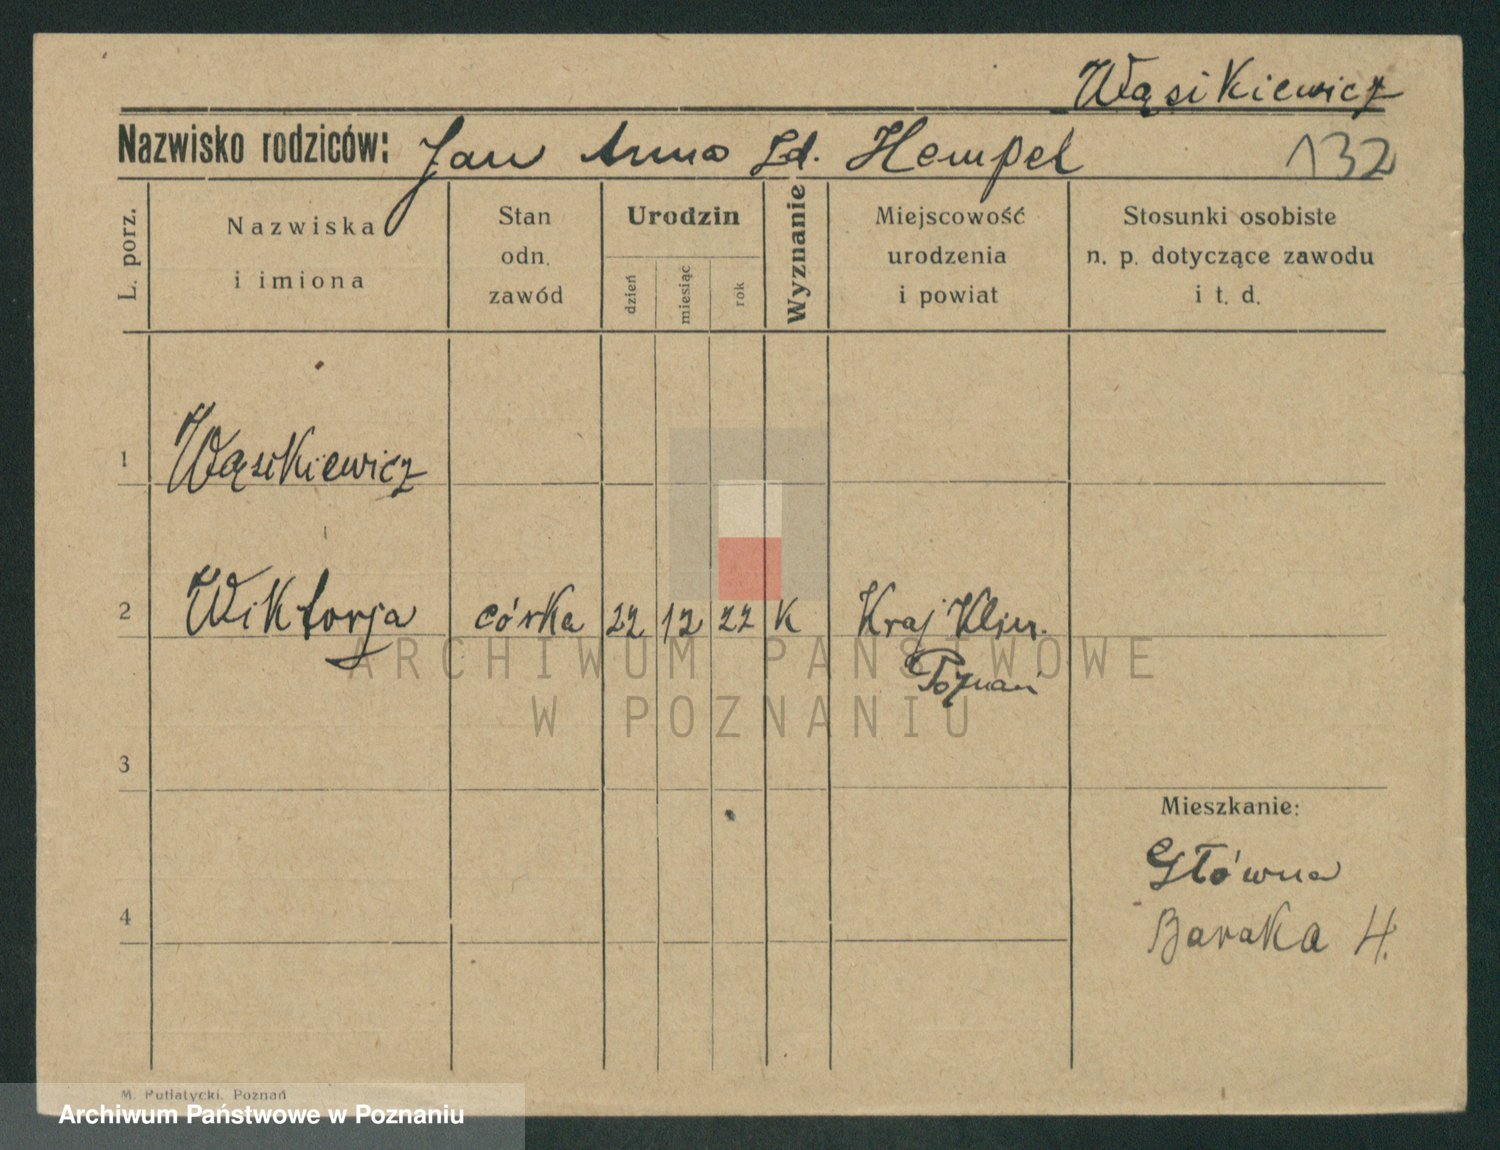 Wąsikiewicz
Nazwisko rodziców: Jan Anna Zd. Hempel 132
L. porz.
Nazwiska
i imiona
Stan
odn.
zawód
Urodzin
dzień
miesiąc
rok
Wyznanie
Miejscowość
urodzenia
i powiat
Stosunki osobiste
n. p. dotyczące zawodu
i t. d.
1 Wąsikiewicz
2 Wiktorja córka 22 12 22 K Kraj Klin.
Poznań
3
Mieszkanie:
Główna
4
Baraka H.
ARCHIWUM PAŃSTWOWE
W POZNANIU
M. Putiatycki, Poznań
Archiwum Państwowe w Poznaniu